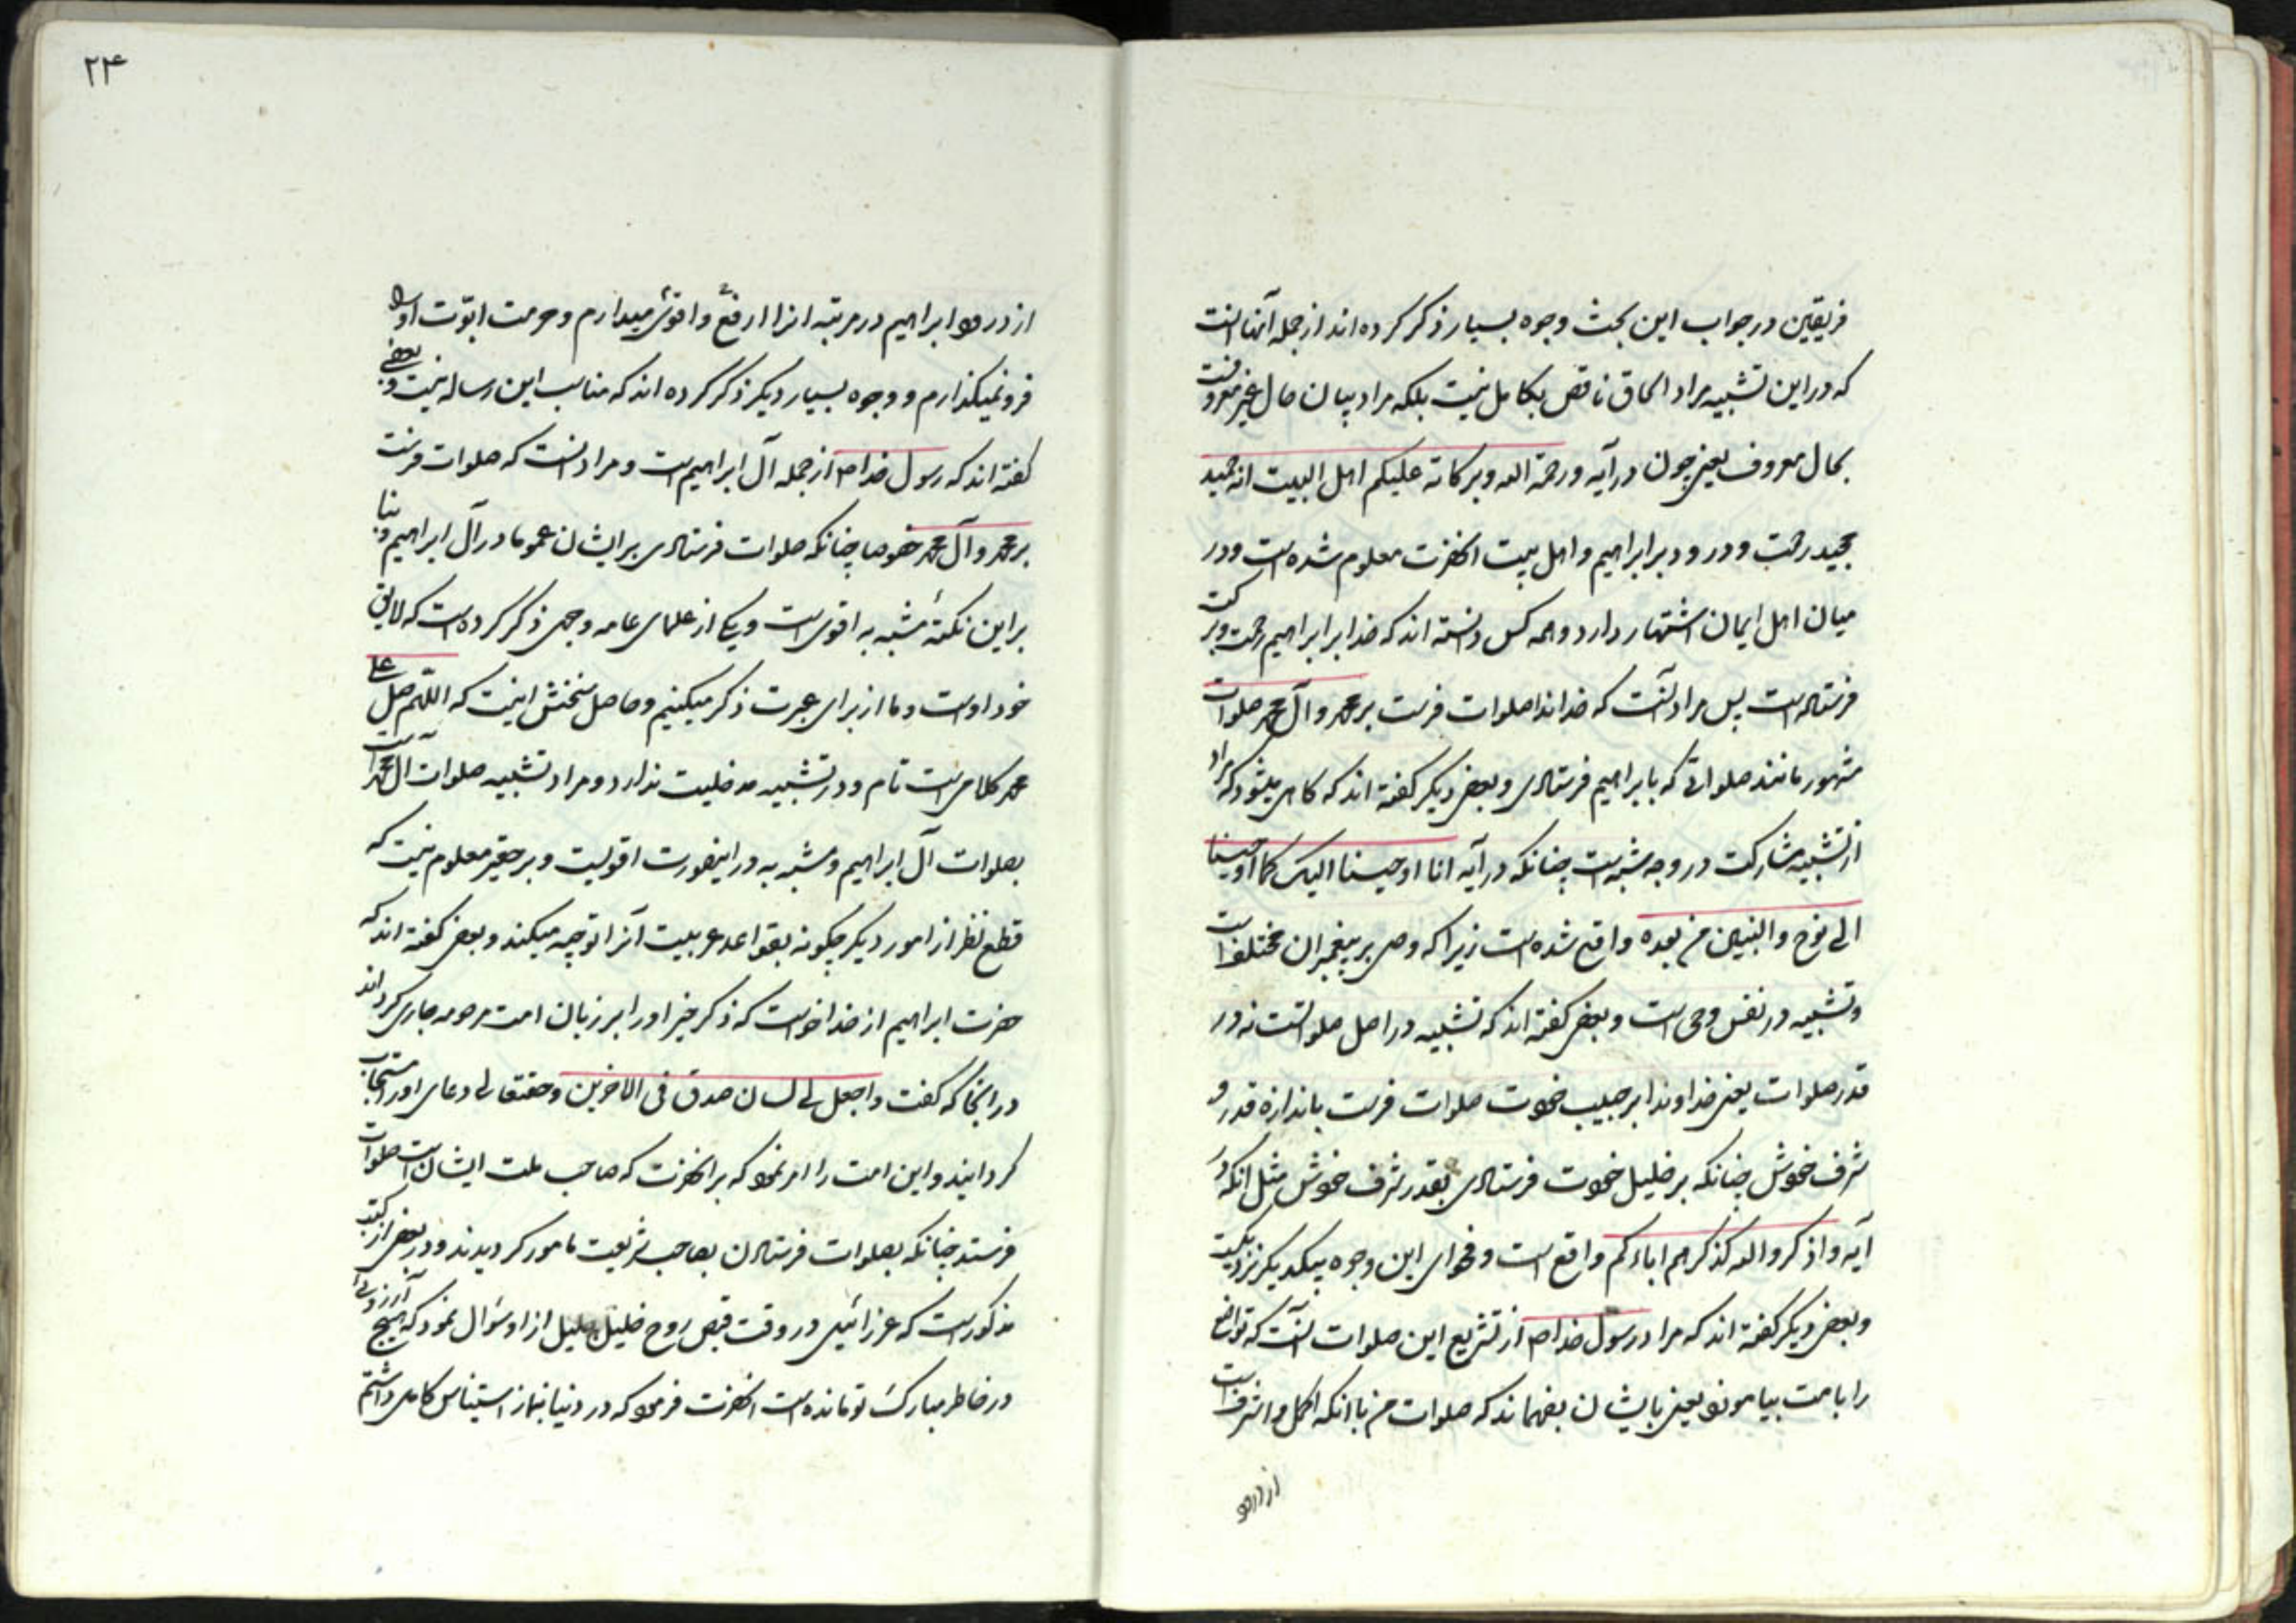 فریقین در جواب این بحث وجوه بسیار ذکر کرده اند از جمله آنها انست
که در این تشبیه مراد الحاق ناقص بکامل نیست بلکه مراد بیان حال غیر معروفست
بحال معروف یعنی چون در آیه ورحمة الله وبرکاته علیکم اهل البیت انه حمید
مجید رحمت و درود بر ابراهیم و اهل بیت انحضرت معلوم شده است و در
میان اهل ایمان اشتهار دارد و همه کس دانسته اند که خدا بر ابراهیم رحمت و برکت
فرستاده است پس مراد آنست که خداندا صلوات فرست بر محمد و آل محمد صلوات
مشهور مانند صلواتی که بابراهیم فرستادی و بعضی دیگر گفته اند که گاهی میشود که مراد
از تشبیه مشارکت در وجه شبه است چنانکه در آیه انا اوحینا الیک کما اوحینا
الی نوح والنبیین من بعده واقع شده است زیرا که وحی بر پیغمبران مختلف است
و تشبیه در نفس وحی است و بعضی گفته اند که تشبیه در اصل صلواتست نه در
قدر صلوات یعنی خداوندا بر حبیب خودت صلوات فرست باندازه قدر و
شرف خودش چنانکه بر خلیل خودت فرستادی بقدر شرف خودش مثل انکه در
آیه واذکروا الله کذکرکم اباءکم واقع است و فحوای این وجوه بیکدیگر نزدیکست
و بعضی دیگر گفته اند که مراد رسول خدا ص از تشریع این صلوات آنست که تواضع
را بامت بیاموزد یعنی بایشان بفهماند که صلوات من با انکه اکمل و اشرف است
از درود
۲۴
از درود ابراهیم در مرتبه انرا ارفع و اقوی میدارم و حرمت ابوت او را
فرو نمیگذارم و وجوه بسیار دیگر ذکر کرده اند که مناسب این رساله نیست و بعضی
گفته اند که رسول خدا ص از جمله آل ابراهیم است و مراد انست که صلوات فرست
بر محمد و آل محمد خصوصا چنانکه صلوات فرستادی بر ایشان عموما در آل ابراهیم و بنا
بر این نکتهٔ مشبه به اقوی است و یکی از علمای عامه وجهی ذکر کرده است که لایق
خود اوست و ما از برای عبرت ذکر میکنیم و حاصل سخنش اینست که اللهم صل علی
محمد کلامی است تام و در تشبیه مدخلیت ندارد و مراد تشبیه صلوات آل محمد است
بصلوات آل ابراهیم و مشبه به در اینصورت اقویست و بر حقیر معلوم نیست که
قطع نظر از امور دیگر چگونه بقواعد عربیت آنرا توجیه میکند و بعضی گفته اند که
حضرت ابراهیم از خدا خواست که ذکر خیر او را بر زبان امت مرحومه جاری گرداند
در انجا که گفت واجعل لی لسان صدق فی الاخرین و حقتعالی دعای او را مستجاب
گردانید و این امت را امر نمود که بر انحضرت که صاحب ملت ایشان است صلوات
فرستند چنانکه بصلوات فرستادن بصاحب شریعت مامور گردیدند و در بعضی از کتب
مذکور است که عزرائیل در وقت قبض روح خلیل جلیل از او سؤال نمود که هیچ آرزوئی
در خاطر مبارک تو مانده است انحضرت فرمود که در دنیا بنماز استیناس کاملی داشتم